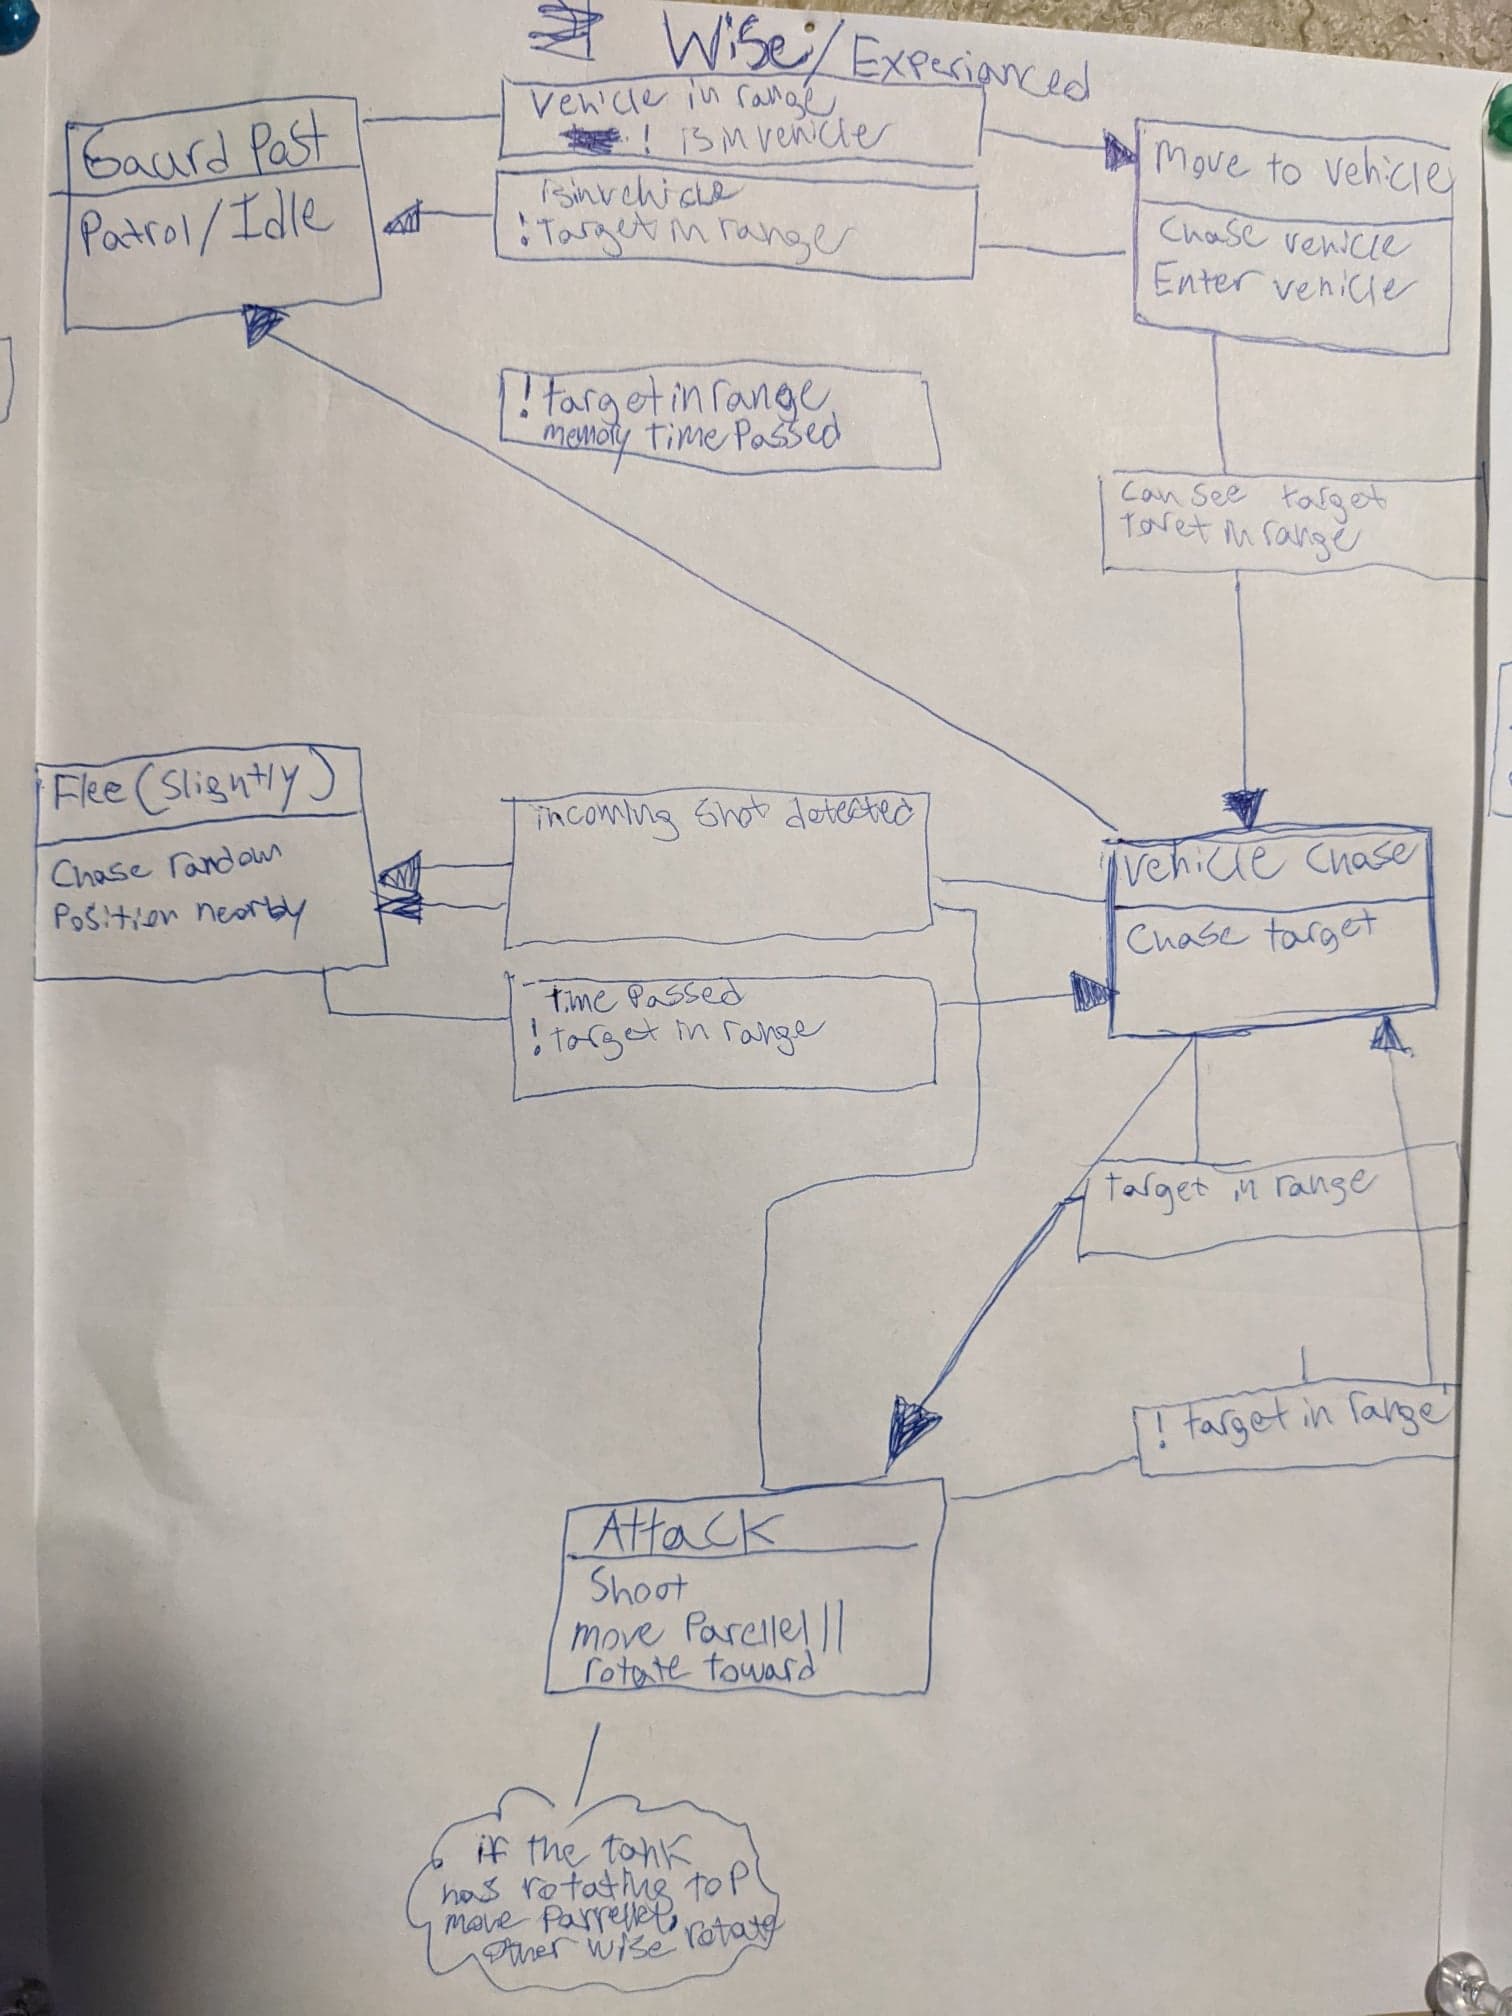 Wise/Experianced
Gaurd Post
Patrol/Idle
Vehicle in range
! isinvehicle
isinvehicle
! Target in range
Move to vehicle
Chase vehicle
Enter vehicle
! target in range
memory time Passed
Can see target
Taret in range
Flee (Slightly)
Chase random
Position nearby
incoming shot detected
Time Passed
! target in range
Vehicle Chase
Chase target
Target in range
! target in range
Attack
Shoot
move Parellel ||
rotate toward
if the tank
has rotating top
move Parrellel,
other wise rotate